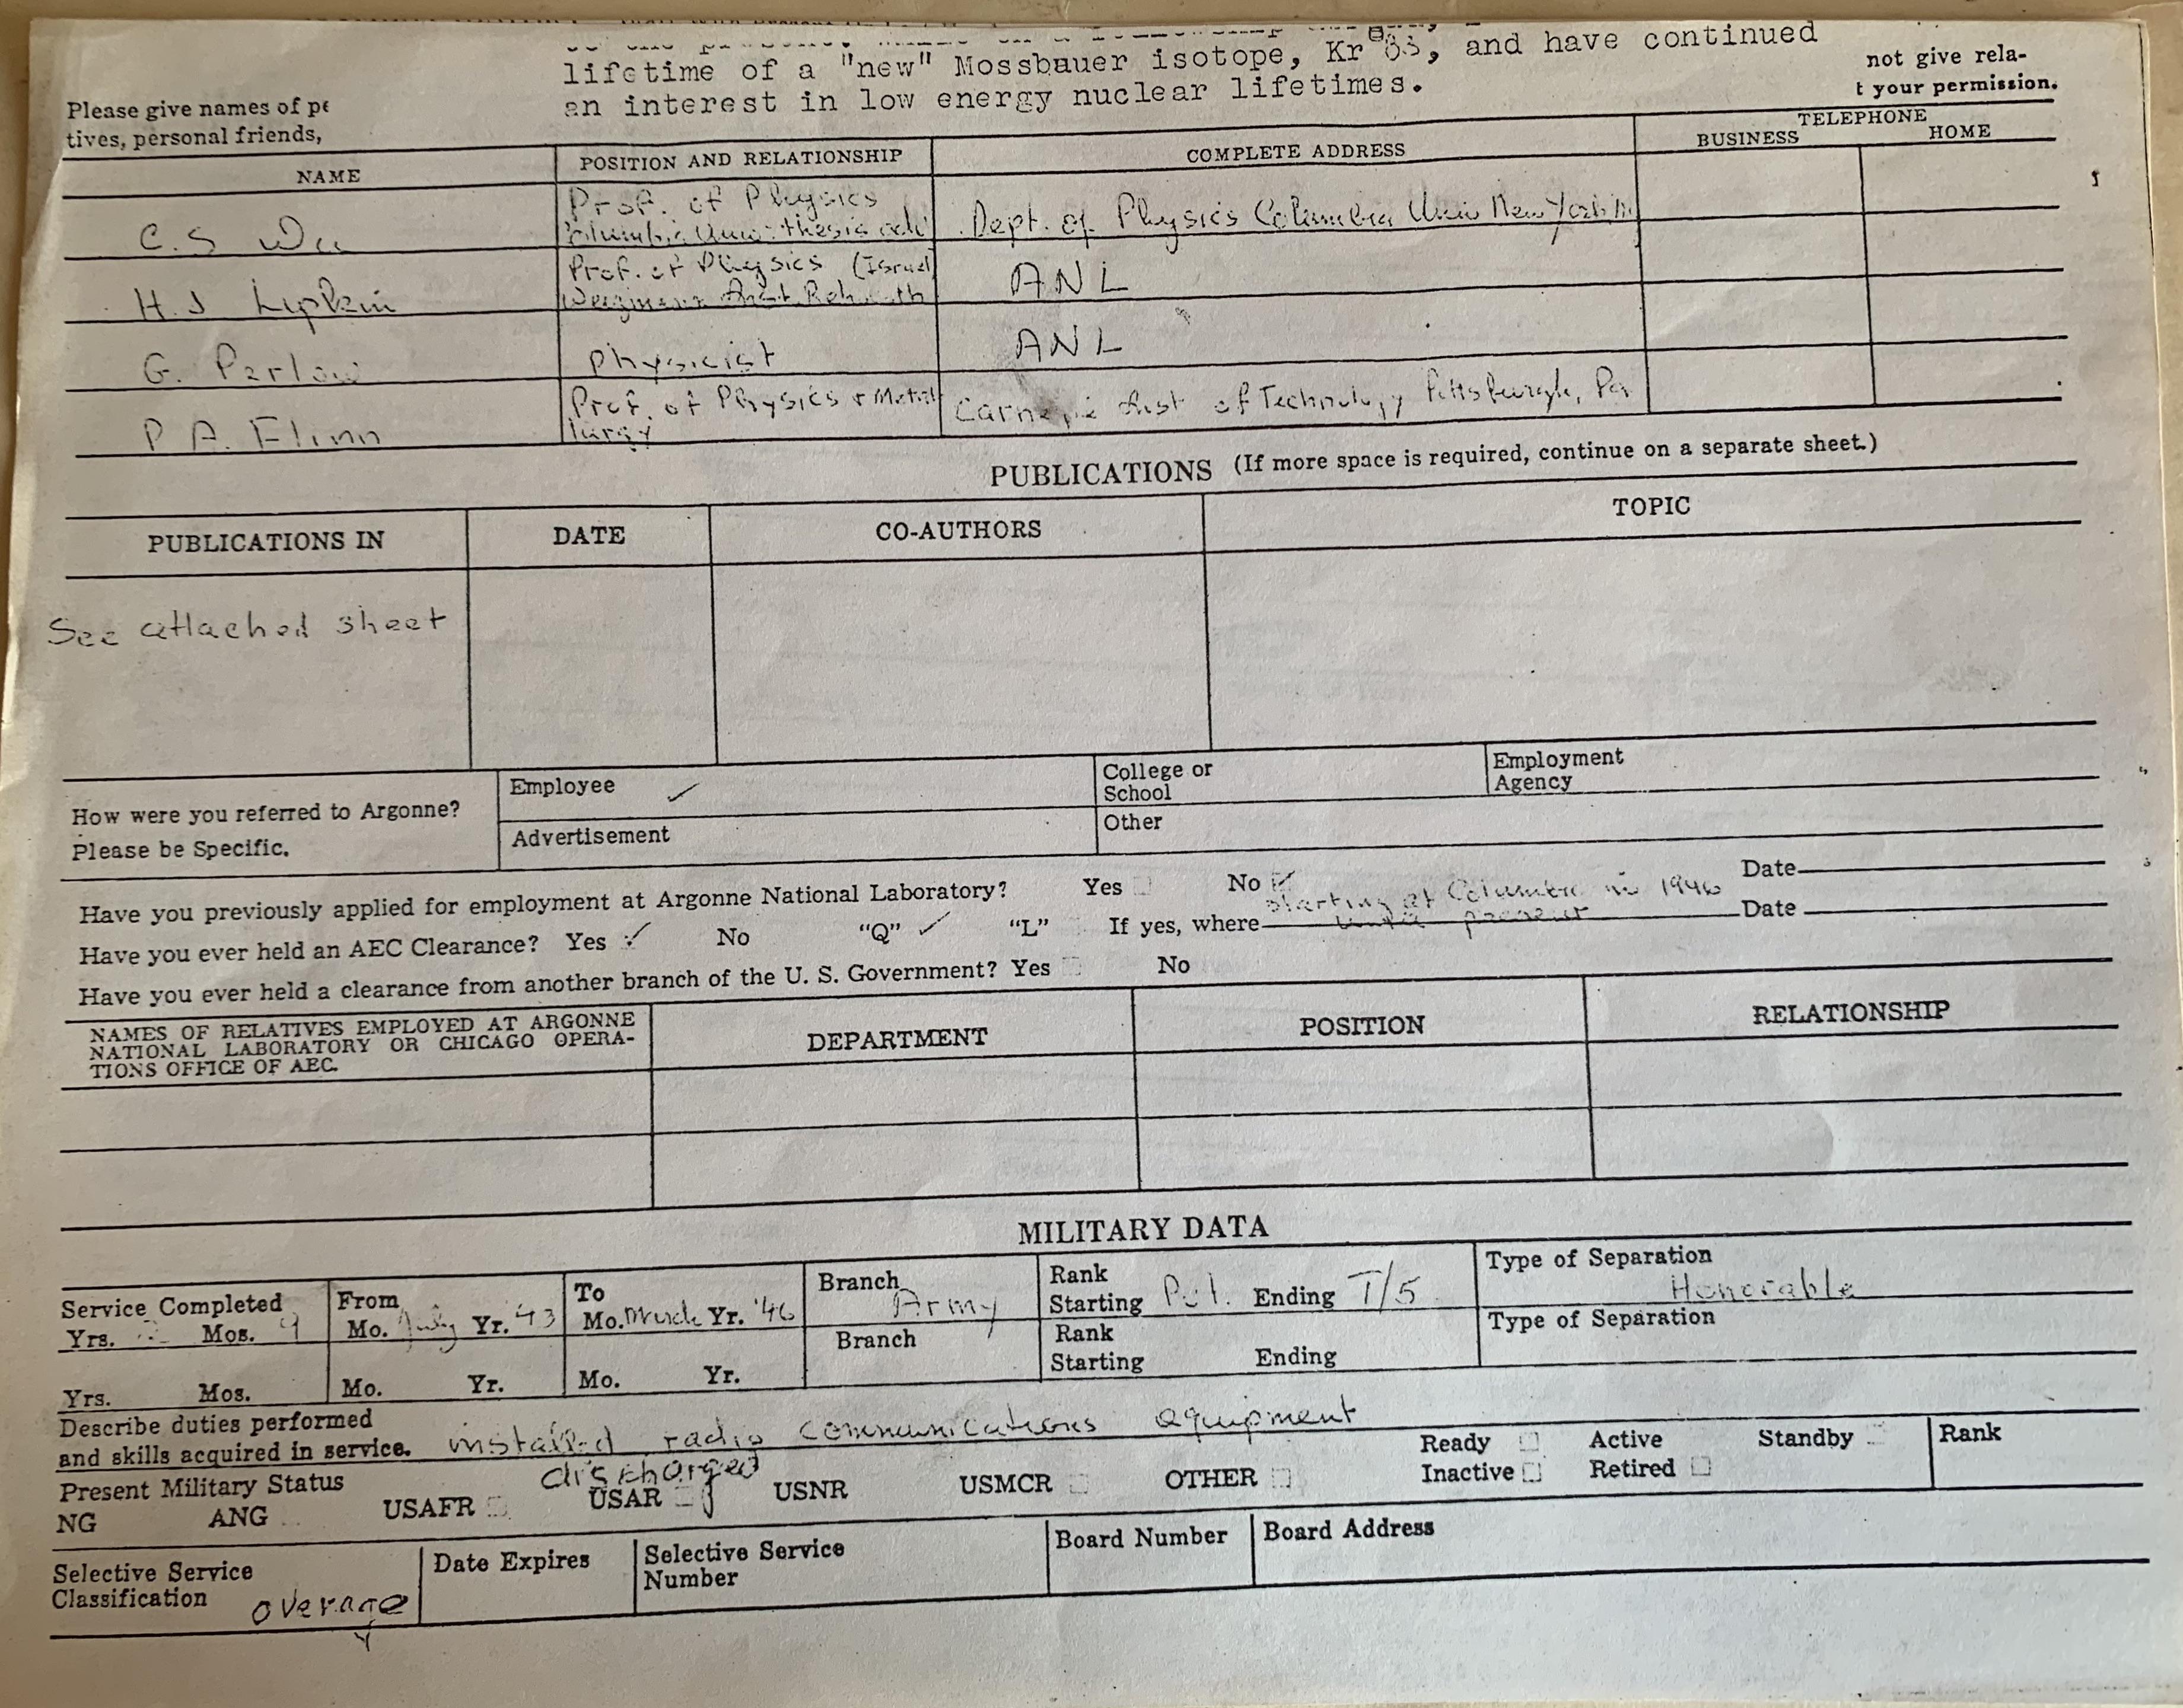 lifetime of a "new" Mossbauer isotope, Kr 83, and have continued
an interest in low energy nuclear lifetimes.
not give rela-
t your permission.
Please give names of pe
tives, personal friends,
TELEPHONE
NAME POSITION AND RELATIONSHIP COMPLETE ADDRESS BUSINESS HOME
Prof. of Physics
C. S. Wu Columbia Univ. thesis adv Dept. of Physics Columbia Univ New York
Prof. of Physics (Israel
H. J Lipkin Weizmann Inst. Rehovoth ANL
G. Perlow Physicist ANL
Prof. of Physics + Metal
P A. Flinn lurgy Carnegie Inst of Technology Pittsburgh, Pa
PUBLICATIONS (If more space is required, continue on a separate sheet.)
PUBLICATIONS IN DATE CO-AUTHORS TOPIC
See attached sheet
How were you referred to Argonne?
Please be Specific.
Employee ✓
Advertisement
College or
School
Other
Employment
Agency
Have you previously applied for employment at Argonne National Laboratory? Yes No ✓ Date
starting at Columbia in 1946
Have you ever held an AEC Clearance? Yes ✓ No "Q" ✓ "L" If yes, where until present Date
Have you ever held a clearance from another branch of the U. S. Government? Yes No
NAMES OF RELATIVES EMPLOYED AT ARGONNE
NATIONAL LABORATORY OR CHICAGO OPERA-
TIONS OFFICE OF AEC.
DEPARTMENT POSITION RELATIONSHIP
MILITARY DATA
Service Completed
Yrs. 2 Mos. 9
From
Mo. July Yr. '43
To
Mo. March Yr. '46
Branch
Army
Rank
Starting Pvt. Ending T/5
Type of Separation
Honorable
Yrs. Mos. Mo. Yr. Mo. Yr.
Branch
Rank
Starting Ending
Type of Separation
Describe duties performed
and skills acquired in service. installed radio communications equipment
Present Military Status discharged
NG ANG USAFR USAR USNR USMCR OTHER
Ready Active Standby Rank
Inactive Retired
Selective Service
Classification overage
Date Expires
Selective Service
Number
Board Number Board Address